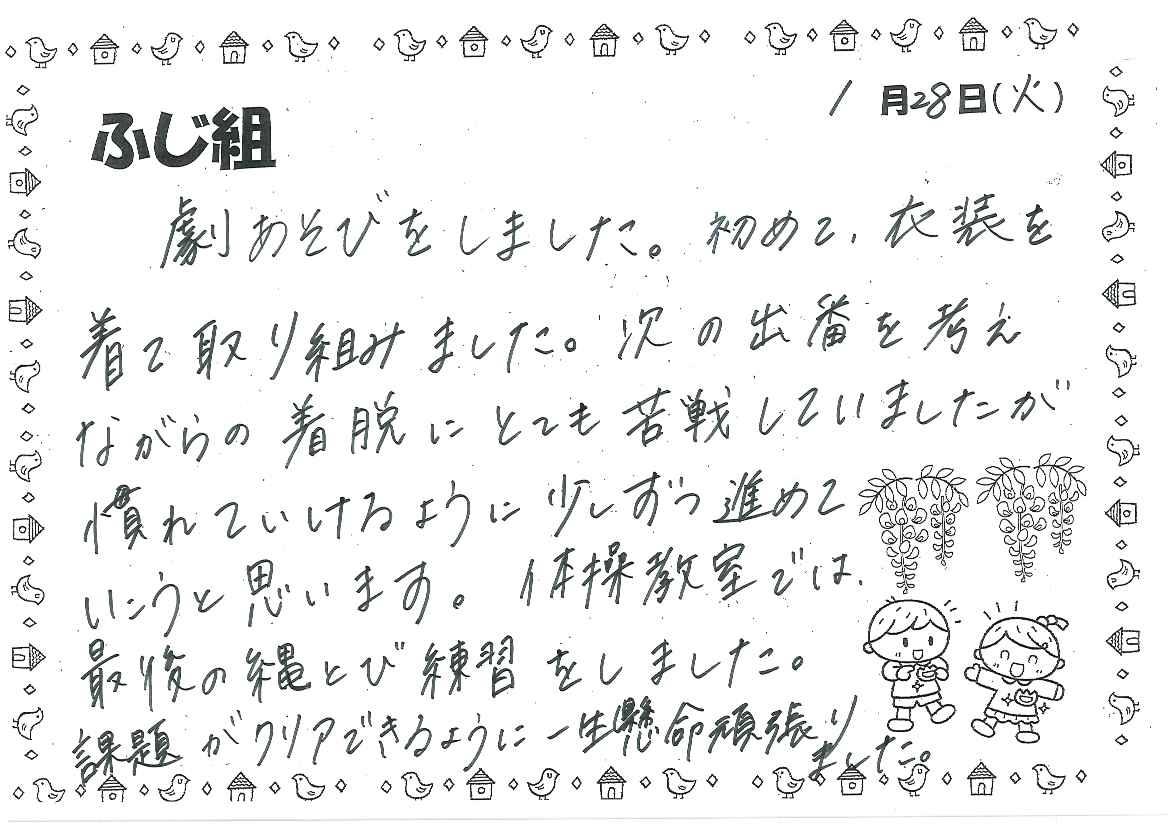 1月28日(火)
ふじ組
劇あそびをしました。初めて、衣装を
着て取り組みました。次の出番を考え
ながらの着脱にとても苦戦していましたが
慣れていけるように少しずつ進めて
いこうと思います。体操教室では、
最後の縄とび練習をしました。
課題がクリアできるように一生懸命頑張り
ました。